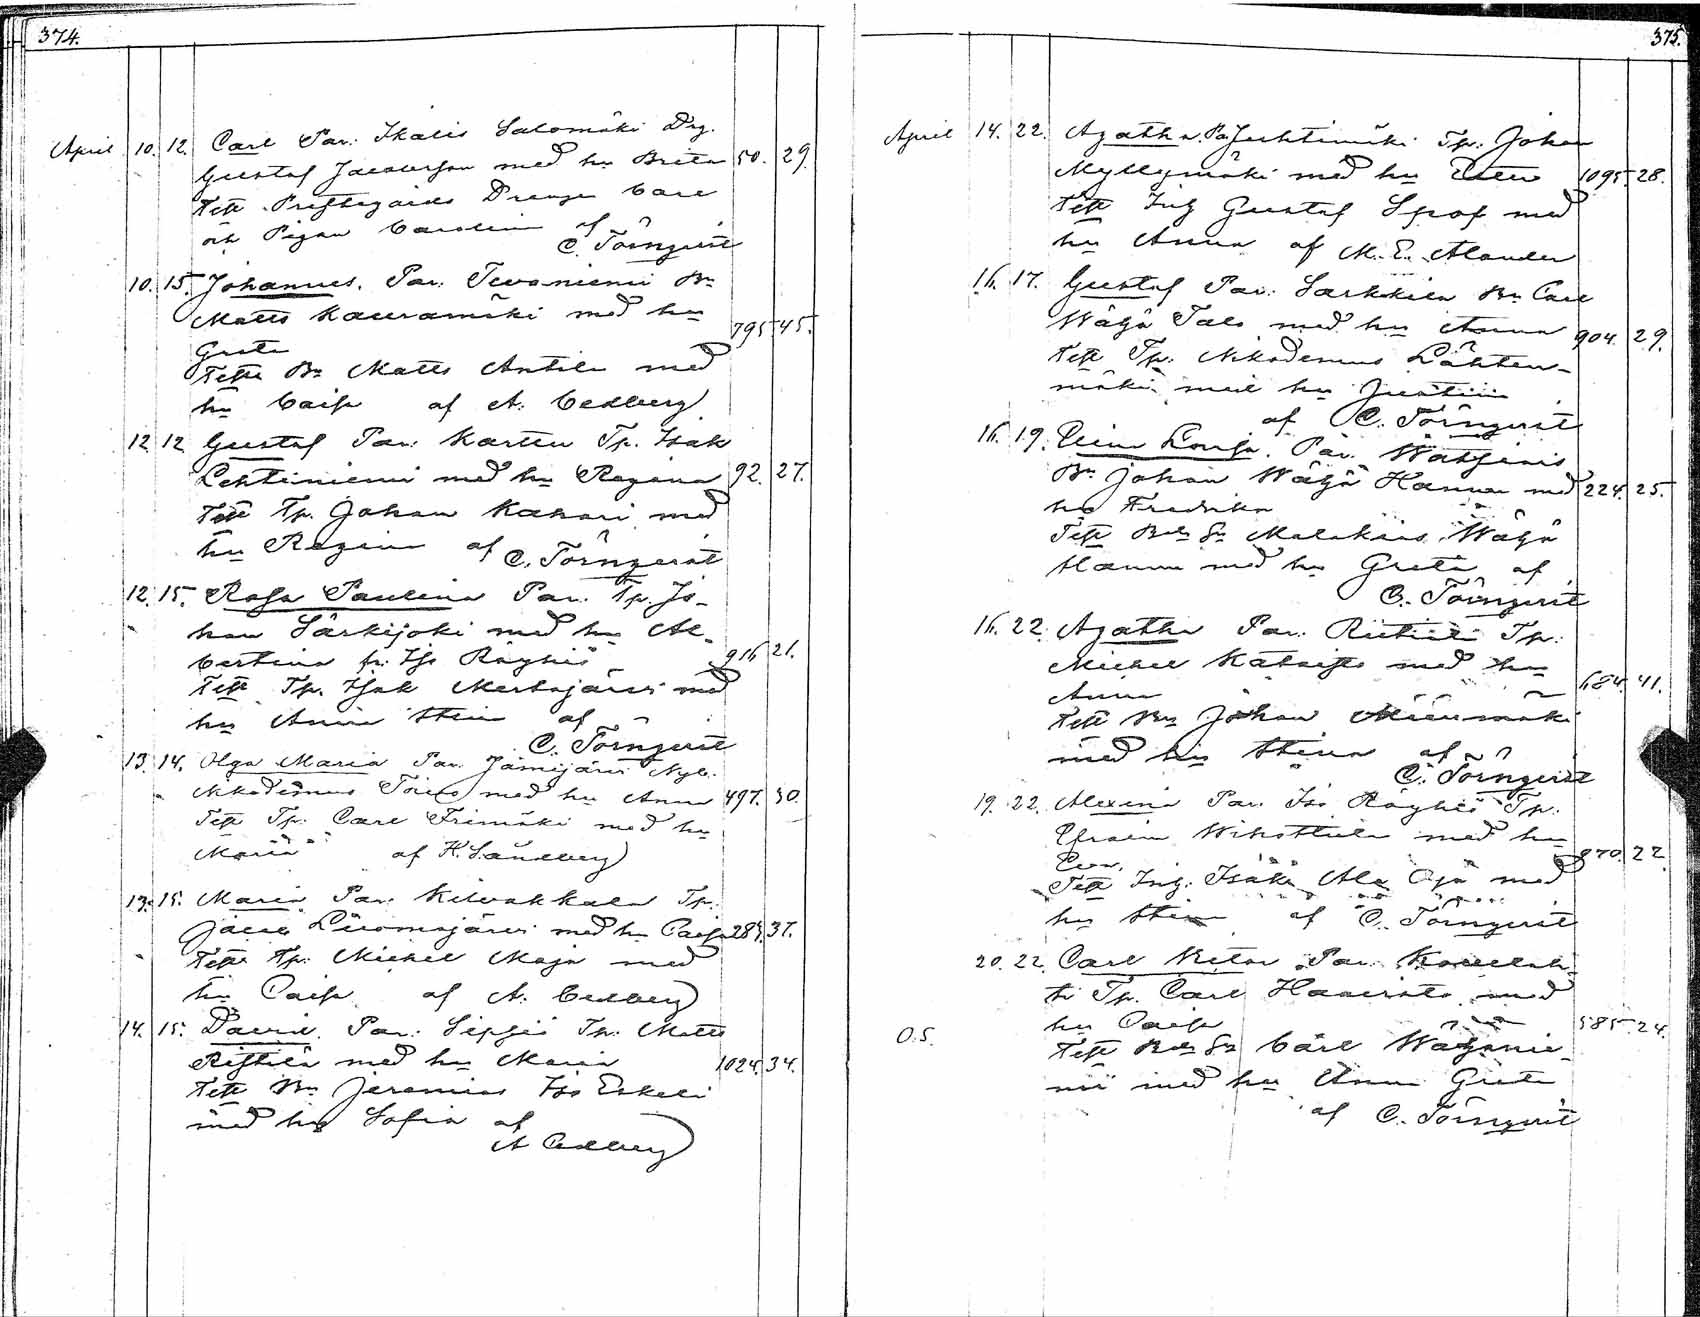 374.
April 10. 12. Carl Par: Ikalis Salomäki Drg.
Gustaf Jacobsson med hu Brita 50. 29.
Test Prestegårds Drenge Carl
och Pigan Carolin af
C. Törnqvist
10. 15. Johannes. Par: Tevaniemi Bn
Matts Kauramäki med hu 795 45.
Greta
Test Bn Matts Antila med
hu Caisa af A. Cedberg
12 12 Gustaf Par: Kartu Tp. Isak
Lehtiniemi med hu Regina 92. 27.
Test Tp. Johan Kahari med
hu Regina af C. Törnqvist
12. 15. Rosa Paulina Par. Tp. Jo-
han Särkijoki med hu Al-
bertina fr. Iso Röyhiö 916 21.
Test Tp. Isak Mertajärvi med
hu Anna Stina af
C. Törnqvist
13. 14. Olga Maria Par. Jämijärvi Nyb.
Nikodemus med hu Anna 497. 30.
Test Tp: Carl med hu
Maria af K. Sandberg
13. 15. Maria Par. Kilvakkala Tp.
Jacob Liuomajärvi med hu Caisa 284. 37.
Test Tp. Michel Maja med
hu Caisa af A. Cedberg
14. 15. David Par: Sipsiö Tp: Matts
Ristilä med hu Maria 1024. 34.
Test Bn Jeremias Iso Eskeli
med hu Sofia af
A Cedberg
375.
April 14. 22. Agatha. Par Juhtimäki Tp. Johan
Myllymäki med hu 1095. 28.
Test Inh Gustaf Spof med
hu Anna af M. E. Alander
16. 17. Gustaf Par: Sarkkila Bn Carl
Wähä Talo med hu Anna 904. 29.
Test Tp: Nikodemus Lähten-
mäki med hu Justiin
af C. Törnqvist
16. 19. Lovisa. Par. Watsiais
Bn Johan Wähä Hannu med 224. 25.
hu Fredrika
Test Malakias Wähä
Hannu med hu Greta af
C. Törnqvist
16. 22. Agatha Par: Riitiala Tp:
Michel med hu
Anna 684. 41.
Test Bn Johan
med hu Stina af
C. Törnqvist
19. 22. Alexina Par. Iso Röyhiö Tp:
Efraim med hu
Eva 870. 22
Test Inh: Isak Ala Oja med
hu Stina af C. Törnqvist
20. 22. Carl Par. Kovelah-
ti Tp. Carl med
hu Caisa 585. 24.
O.S.
Test Carl Wähänie-
mi med hu Anna Greta
af C. Törnqvist